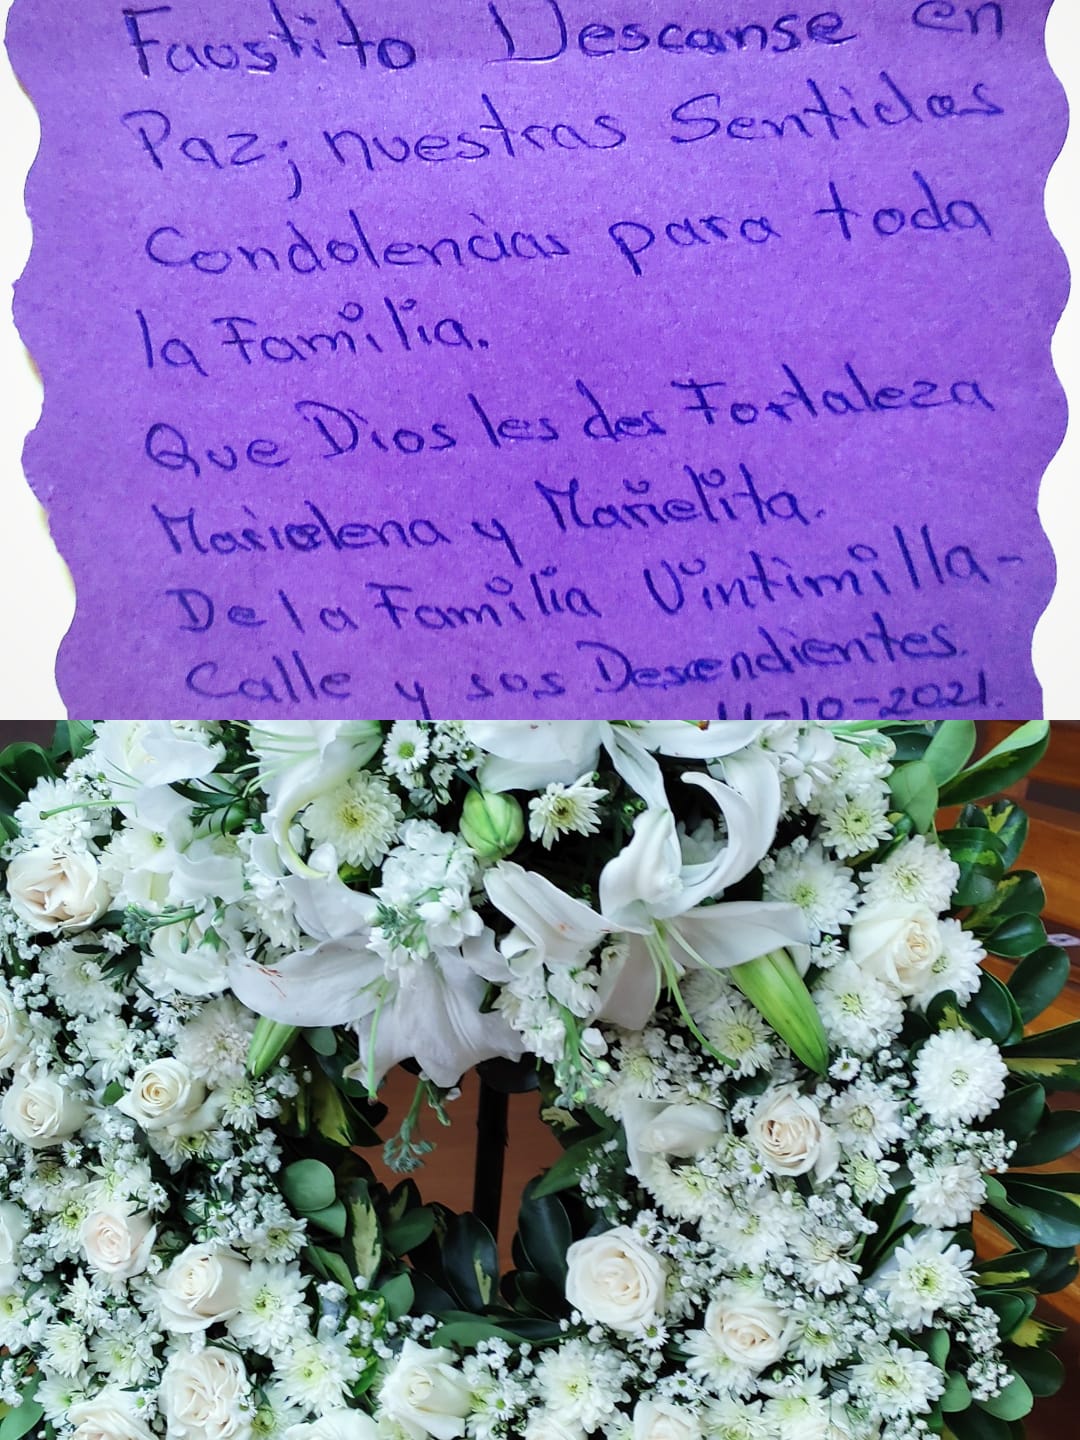 Faustito Descanse en
Paz; nuestras Sentidas
Condolencias para toda
la Familia.
Que Dios les des Fortaleza
Marielena y Marielita.
De la Familia Vintimilla-
Calle y sus Descendientes.
11-10-2021.